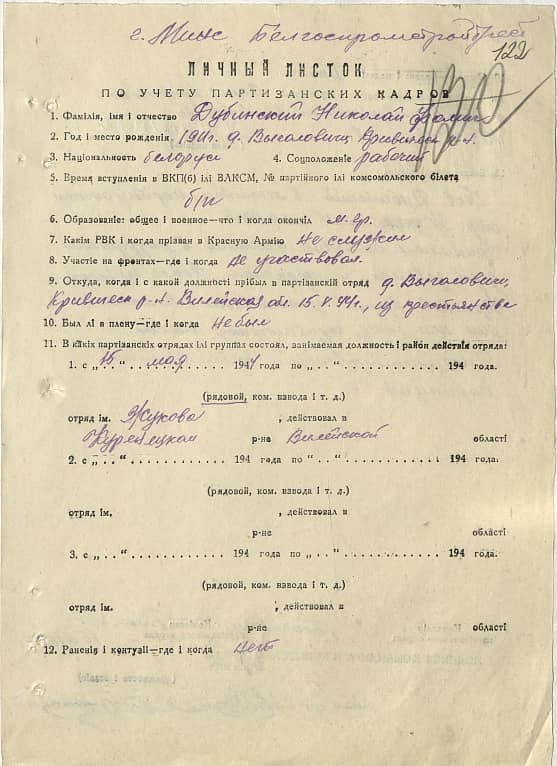 г. Минск Белгоспромстройтрест
122
ЛИЧНЫЙ ЛИСТОК
ПО УЧЕТУ ПАРТИЗАНСКИХ КАДРОВ
1. Фамілія, імя и отчество Дубинский Николай
2. Год і место рождения 1911г. д. Выголовищ Кривическ. р-н.
3. Национальность белорус 4. Соцположение рабочий
5. Время вступления в ВКП(б) ілі ВЛКСМ, № партийного ілі комсомольского білета
б/п
6. Образование: общее і военное—что і когда окончіл
7. Какім РВК і когда прізван в Красную Армію не служил
8. Участіе на фронтах—где і когда не участвовал
9. Откуда, когда і с какой должності прібыл в партізанскій отряд д. Выголовищ,
Кривическ р-н. Вилейская обл. 15.V.44г., из крестьянства
10. Был лі в плену—где і когда не был
11. В какіх партізанскіх отрядах ілі группах состоял, занімаемая должность і район действія отряда:
1. с „15“ мая 1944 года по „ . . “ . . . . . . . . . . . 194 года.
(рядовой, ком. взвода і т. д.)
отряд ім. Жукова , действовал в
р-не Вилейской області
2. с „ . . “ . . . . . . . . . . . . 194 года по „ . . “ . . . . . . . . . . . 194 года.
(рядовой, ком. взвода і т. д.)
отряд ім. , действовал в
р-не області
3. с „ . . “ . . . . . . . . . . . . 194 года по „ . . “ . . . . . . . . . . . 194 года.
(рядовой, ком. взвода і т. д.)
отряд ім. , действовал в
р-не області
12. Раненія і контузіі—где і когда нет